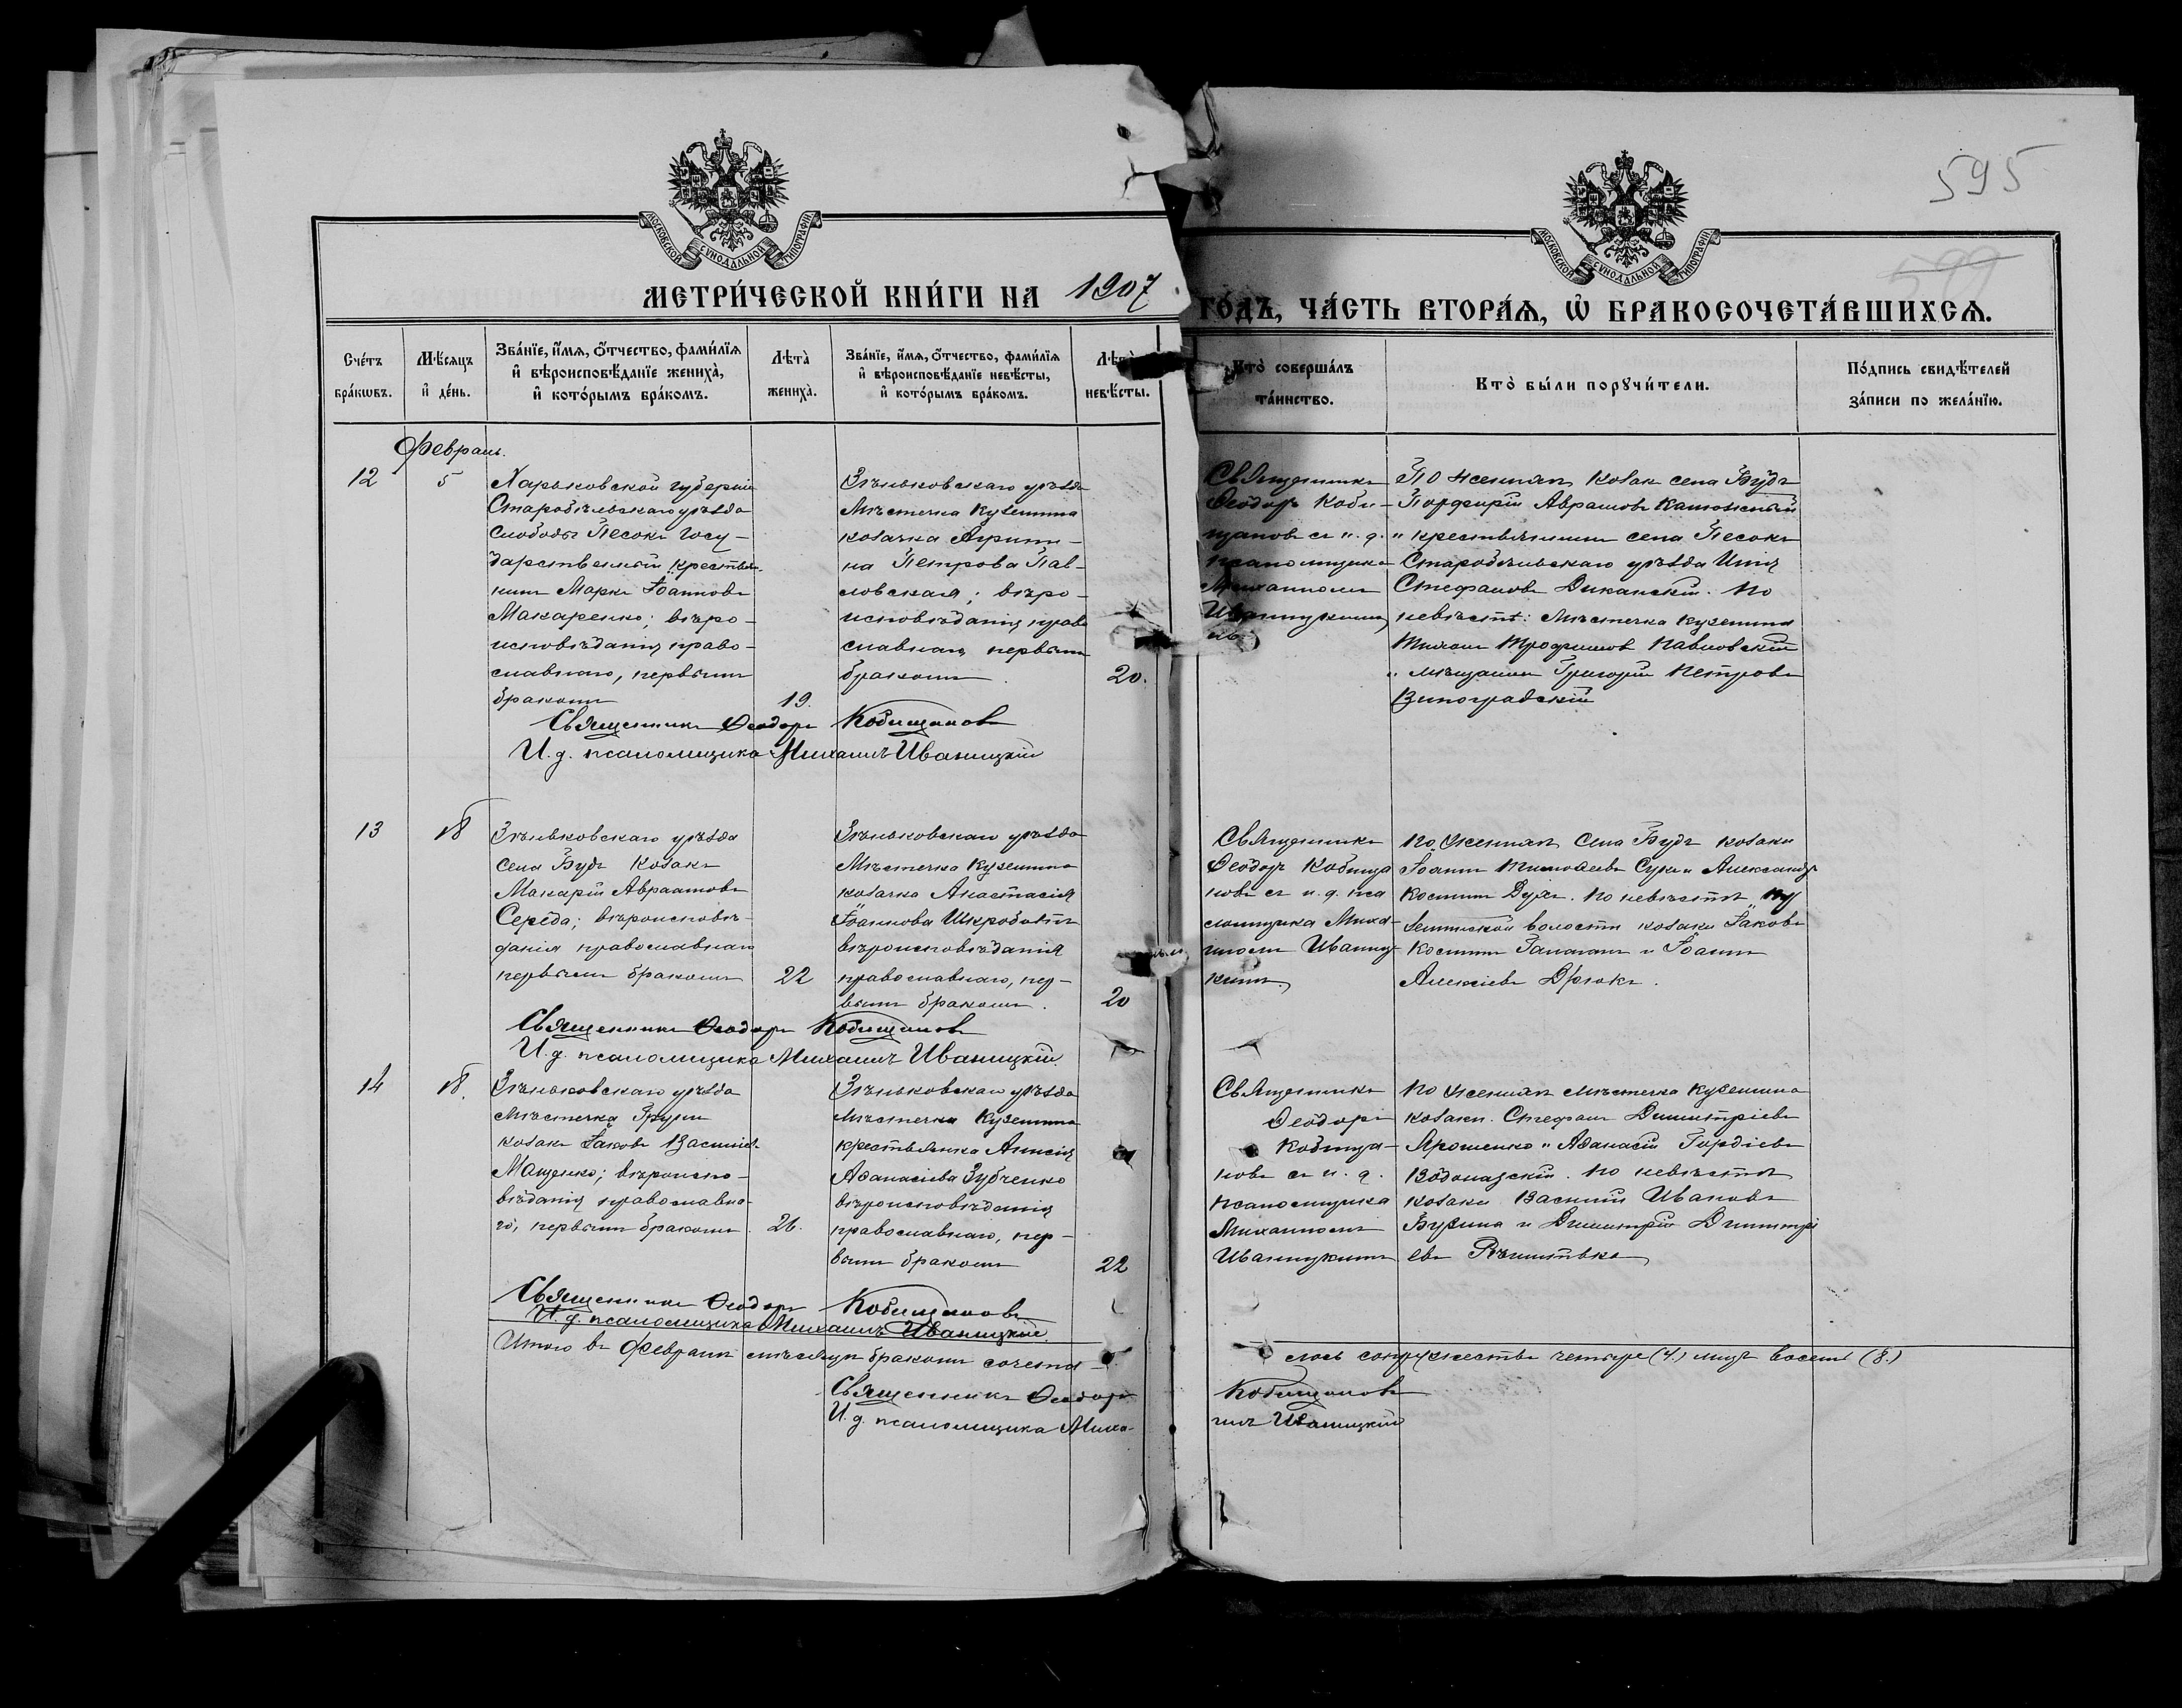 595
599
МОСКОВСКОЙ СѴНОДАЛЬНОЙ ТИПОГРАФІИ
МОСКОВСКОЙ СѴНОДАЛЬНОЙ ТИПОГРАФІИ
МЕТРИ́ЧЕСКОЙ КНИ́ГИ НА 1907
ГО́ДЪ, ЧА́СТЬ ВТОРА́Ѧ, Ѡ҆ БРАКОСОЧЕТА́ВШИХСѦ.
Сче́тъ
бра́кωвъ.
Мѣ́сяцъ
и҆ де́нь.
Зва́нїе, и҆́мѧ, ѻ҆́тчество, фами́лїѧ
и҆ вѣроисповѣ́данїе жениха̀,
и҆ кото́рымъ бра́комъ.
Лѣта̀
жениха̀.
Зва́нїе, и҆́мѧ, ѻ҆́тчество, фами́лїѧ
и҆ вѣроисповѣ́данїе невѣ́сты,
и҆ кото́рымъ бра́комъ.
Лѣта̀
невѣ́сты.
Кто̀ соверша́лъ
та́инство.
Кто̀ бы́ли порꙋчи́тели.
По́дпись свидѣ́телей
за́писи по жела́нїю.
Февраль.
12
5
Харьковской губерніи
Старобѣльскаго уѣзда
слободы Песокъ госу-
дарственный крестья-
нинъ Маркъ Іоанновъ
Макаренко; вѣро-
исповѣданія право-
славнаго, первымъ
бракомъ
19.
Зѣньковскаго уѣзда
Мѣстечка Куземина
козачка Агрипи-
на Петрова Пав-
ловская; вѣро-
исповѣданія право
славнаго, первымъ
бракомъ.
20.
Священникъ
Ѳеодоръ Коби-
щановъ съ и. д.
псаломщика
Михаиломъ
Иваницкимъ
По женихѣ козак села Будъ
Порфирій Аврамовъ
и крестьянинъ села Песокъ
Старобѣльскаго уѣзда
Стефановъ Диканскій. По
невѣстѣ: Мѣстечка Куземина
Трофимов Павловскій
и мѣщанин Григорій Петровъ
Виноградскій
Священникъ Ѳеодоръ Кобищановъ
И. д. псаломщика Михаилъ Иваницкій
13
18
Зѣньковскаго уѣзда
села Будъ козакъ
Макарій Авраамовъ
Середа; вѣроисповѣ-
данія православнаго
первымъ бракомъ
22
Зѣньковскаго уѣзда
Мѣстечка Куземина
козачка Анастасія
Іоаннова
вѣроисповѣданія
православнаго, пер-
вымъ бракомъ.
20
Священникъ
Ѳеодоръ Кобища
новъ съ и. д. пса
ломщика Миха-
иломъ Иваниц-
кимъ
По женихѣ села Будъ козаки
Іоаннъ Тимоѳеевъ Сухи и Александръ
Космин. По невѣстѣ Ку
земинской волости козаки Іаковъ
Космин и Іоаннъ
Алексіевъ
Священникъ Ѳеодоръ Кобищановъ
И. д. псаломщика Михаилъ Иваницкій.
14
18.
Зѣньковскаго уѣзда
мѣстечка Груни
козакъ Іаковъ Василіевъ
Мащенко; вѣроиспо-
вѣданія православна-
го, первымъ бракомъ.
26.
Зѣньковскаго уѣзда
мѣстечка Куземина
крестьянка Анисія
Аѳанасіева Зубченко
вѣроисповѣданія
православнаго, пер-
вымъ бракомъ
22
Священникъ
Ѳеодоръ
Кобища-
новъ съ и. д.
псаломщика
Михаиломъ
Иваницкимъ
По женихѣ мѣстечка Куземина
козаки. Стефанъ Димитріевъ
Ярошенко и Аѳанасій Гордіевъ
По невѣстѣ
козаки Василій Ивановъ
и Димитрій Димитрі
евъ
Священникъ Ѳеодоръ Кобищановъ
И. д. псаломщика Михаилъ Иваницкій.
Итого въ Февралѣ мѣсяцѣ бракомъ сочета-
лось супружествъ четыре (4.) лицъ восемь (8.)
Священникъ Ѳеодоръ Кобищановъ
И. д. псаломщика Миха-
илъ Иваницкій